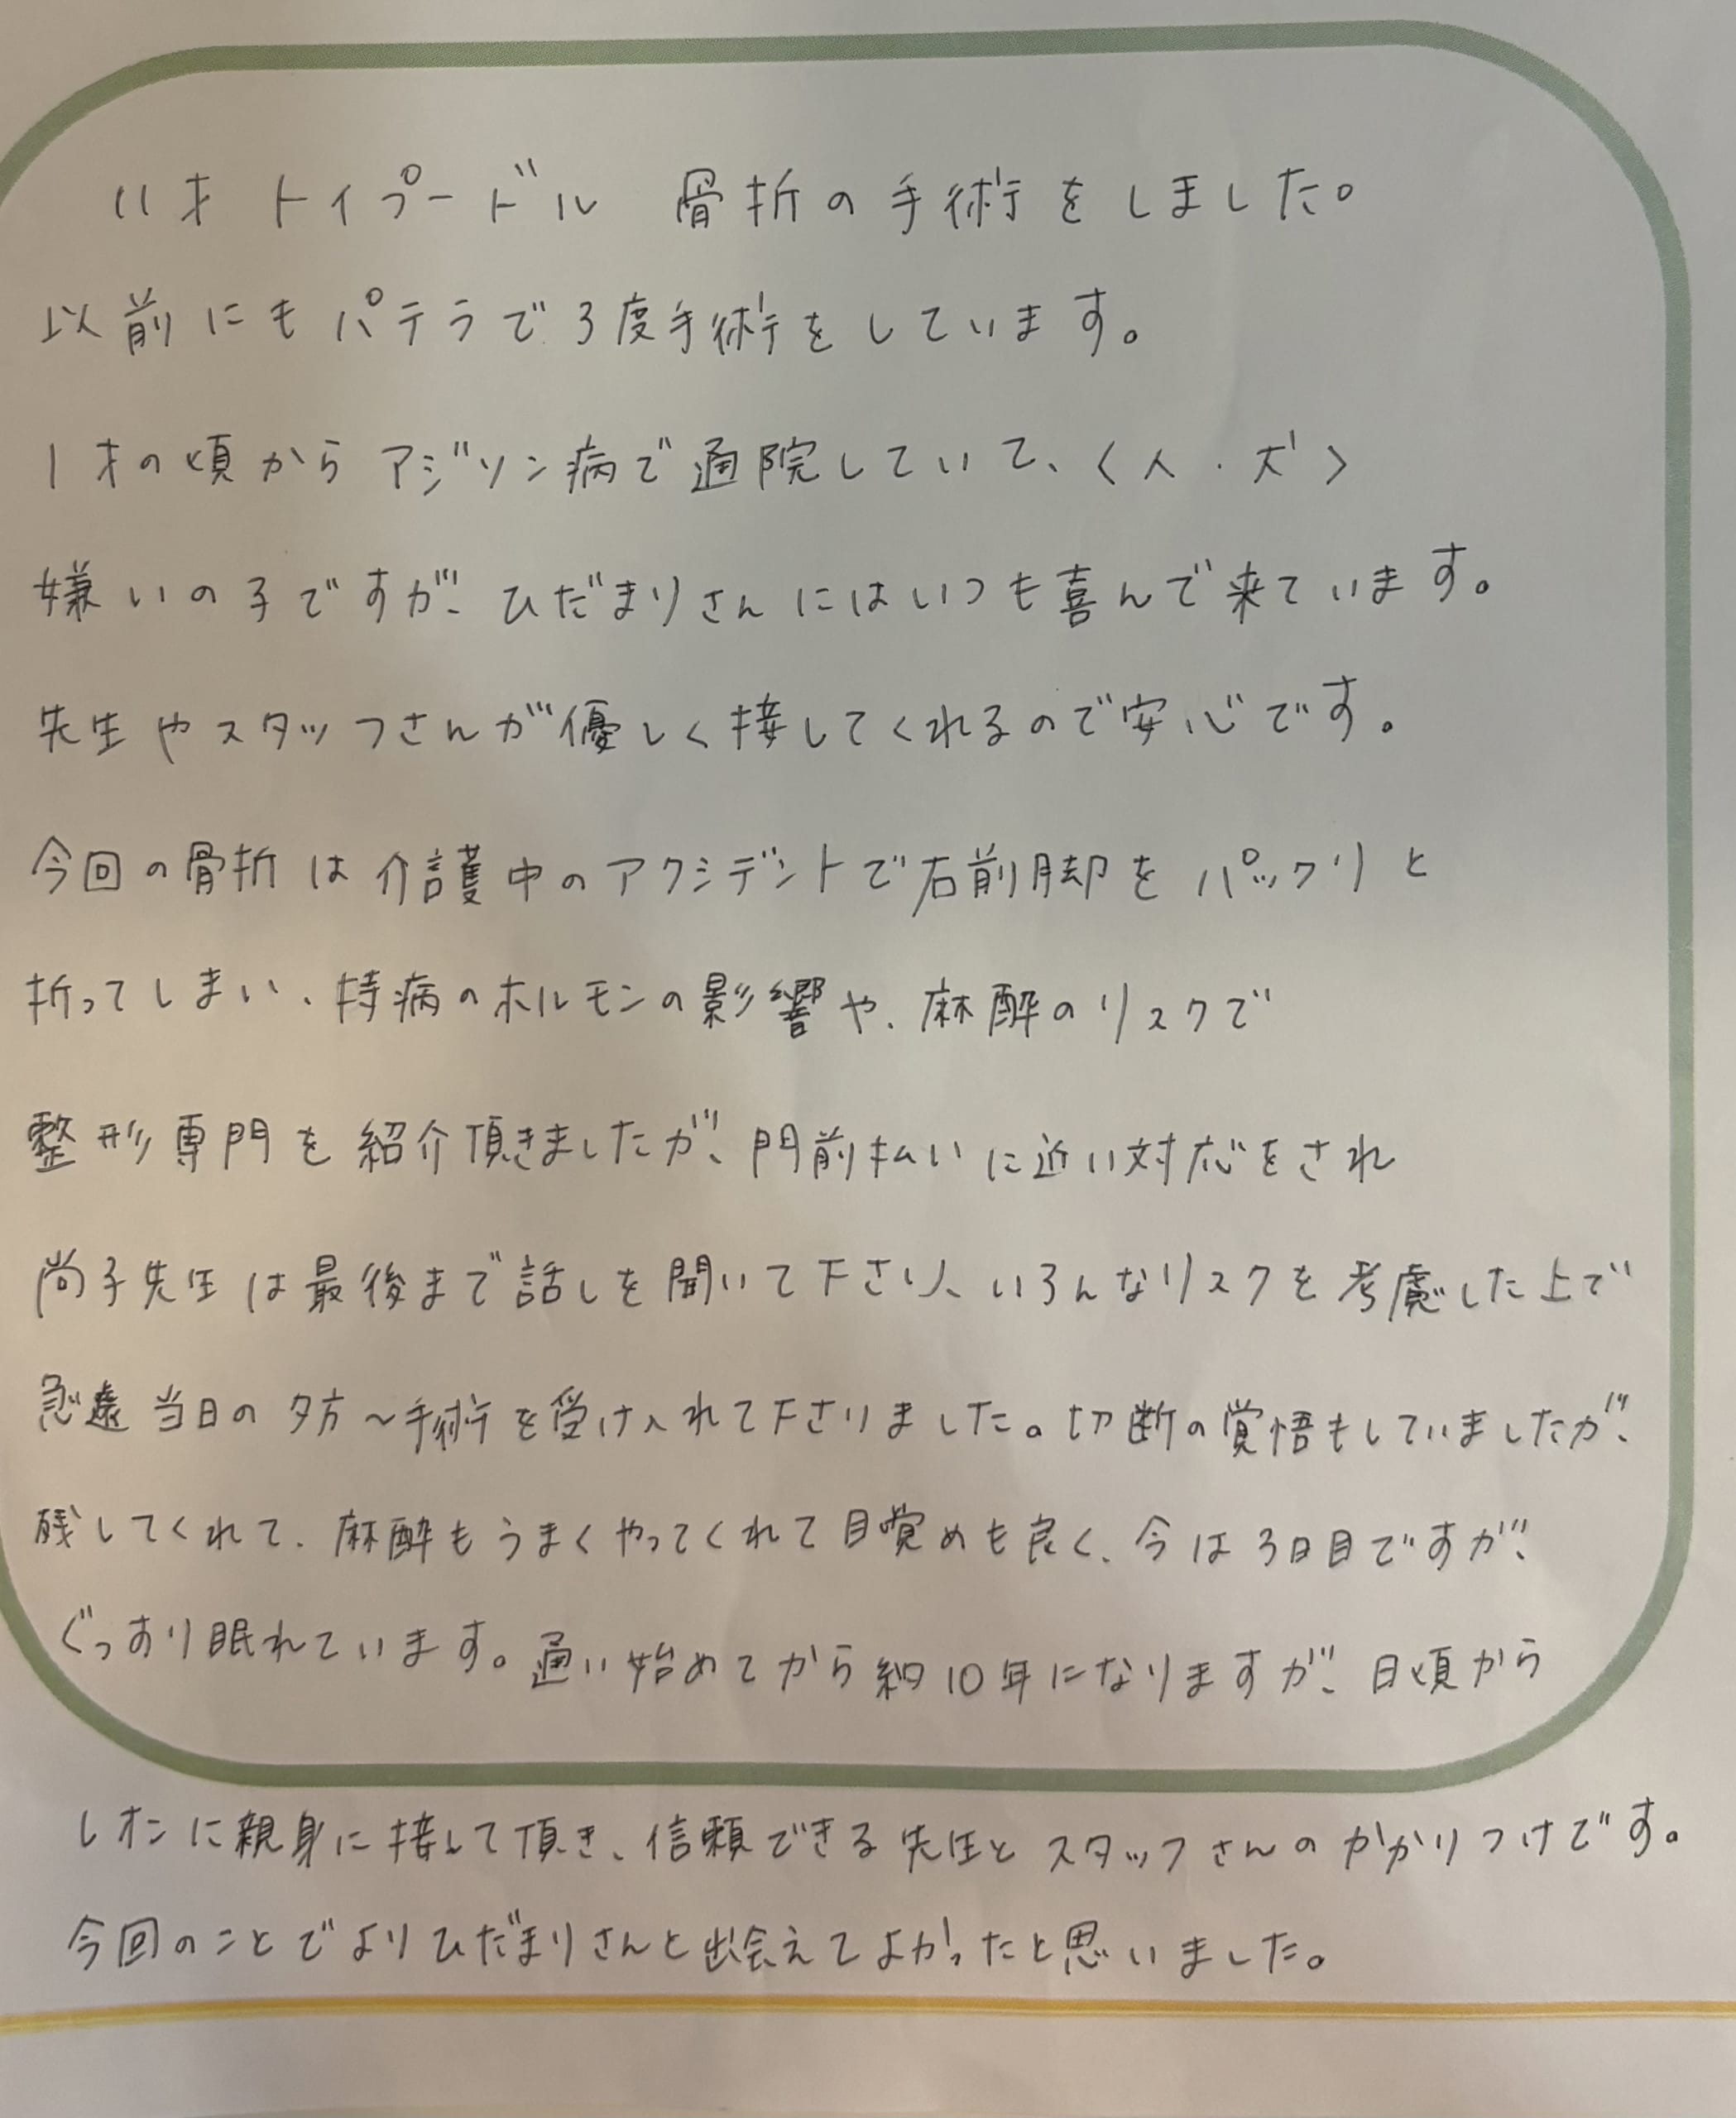 11才 トイプードル 骨折の手術をしました。
以前にもパテラで3度手術をしています。
1才の頃からアジソン病で通院していて、〈人・犬〉
嫌いの子ですが、ひだまりさんにはいつも喜んで来ています。
先生やスタッフさんが優しく接してくれるので安心です。
今回の骨折は介護中のアクシデントで右前脚をパックリと
折ってしまい、持病のホルモンの影響や、麻酔のリスクで
整形専門を紹介頂きましたが、門前払いに近い対応をされ
尚子先生は最後まで話しを聞いて下さり、いろんなリスクを考慮した上で
急遽当日の夕方〜手術を受け入れて下さりました。切断の覚悟もしていましたが、
残してくれて、麻酔もうまくやってくれて目覚めも良く、今は3日目ですが、
ぐっすり眠れています。通い始めてから約10年になりますが、日頃から
レオンに親身に接して頂き、信頼できる先生とスタッフさんのかかりつけです。
今回のことでよりひだまりさんと出会えてよかったと思いました。